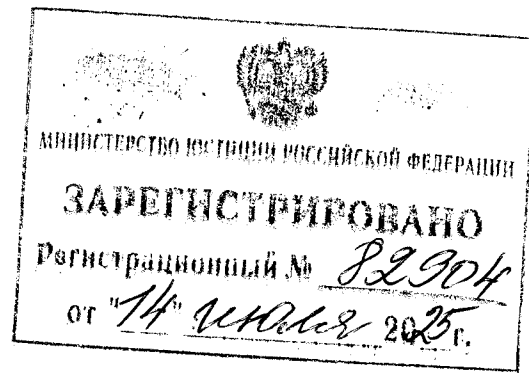 МИНИСТЕРСТВО ЮСТИЦИИ РОССИЙСКОЙ ФЕДЕРАЦИИ
ЗАРЕГИСТРИРОВАНО
Регистрационный № 82904
от "14" июля 2025 г.